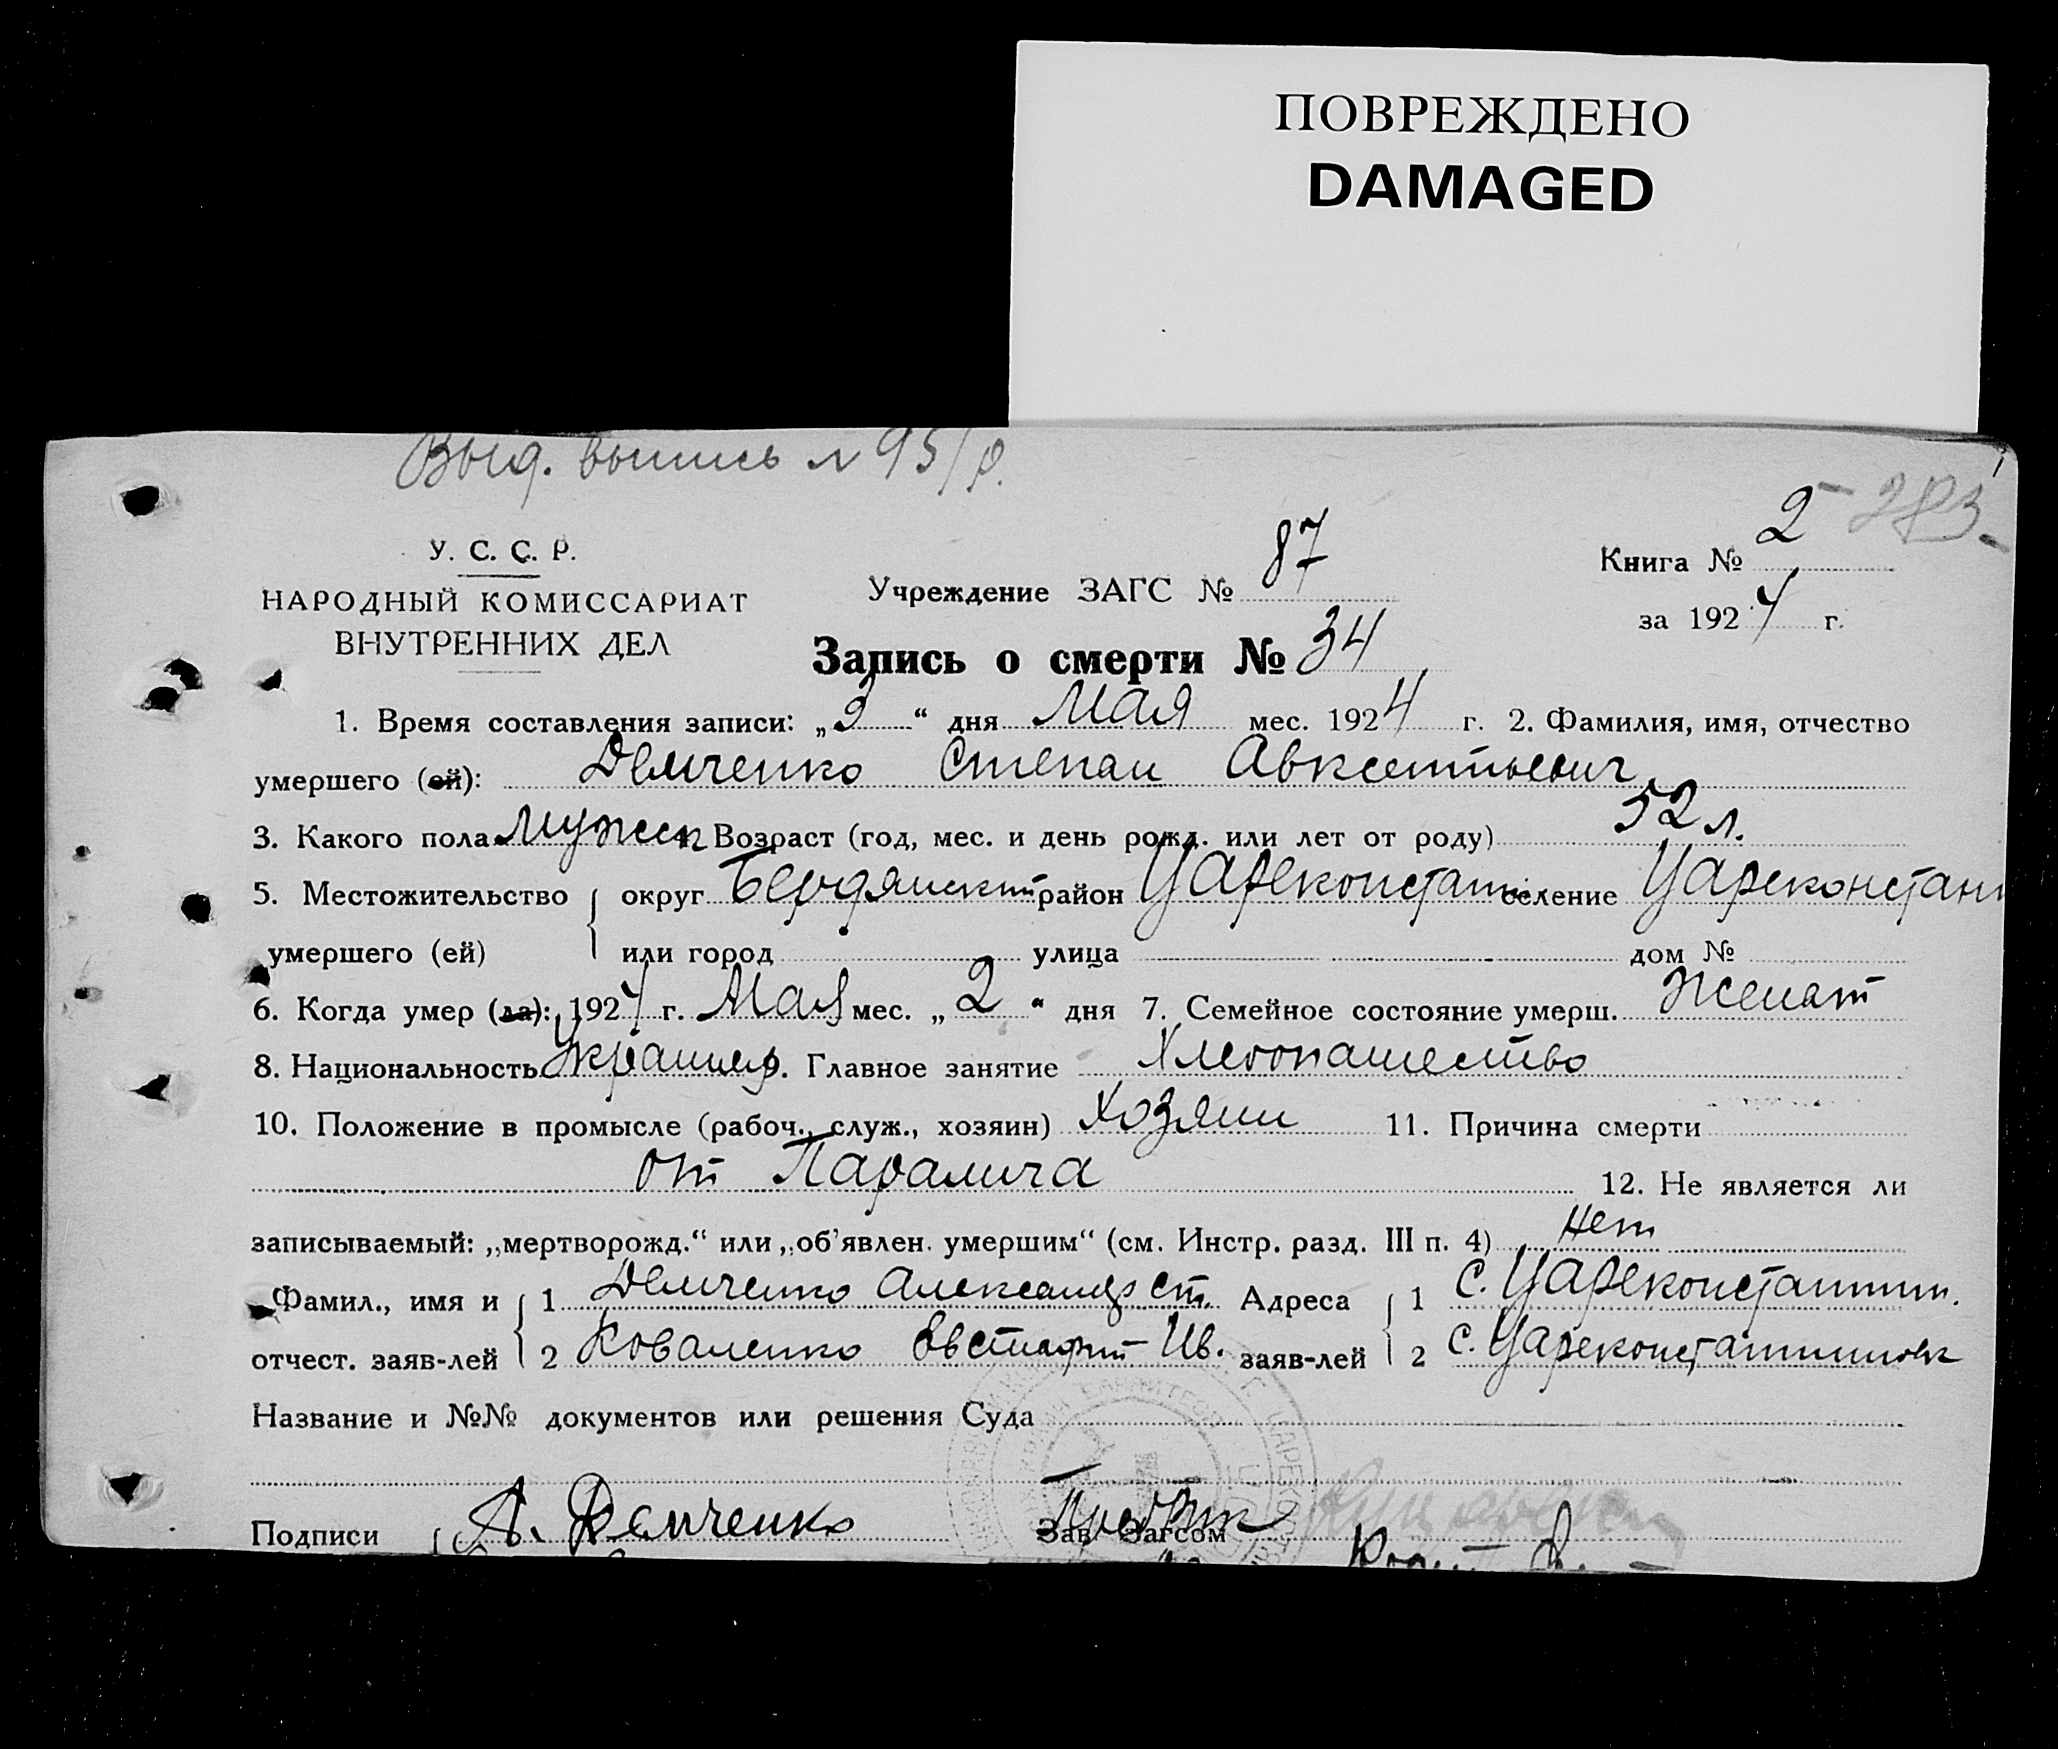 ПОВРЕЖДЕНО
DAMAGED
Выд. выпись № 95/р.
У. С. С. Р.
НАРОДНЫЙ КОМИССАРИАТ
ВНУТРЕННИХ ДЕЛ
Учреждение ЗАГС № 87
Книга № 2
за 1924 г.
Запись о смерти № 34
1. Время составления записи: „3“ дня Мая мес. 1924 г. 2. Фамилия, имя, отчество
умершего (ей): Демченко Степан Авксентьевич
3. Какого пола Мужск 4. Возраст (год, мес. и день рожд. или лет от роду) 52 л.
5. Местожительство округ Бердянский район Цареконстант селение Цареконстант
умершего (ей) или город улица дом №
6. Когда умер (ла): 1924 г. Мая мес. „2“ дня 7. Семейное состояние умерш. Женат
8. Национальность Украинец 9. Главное занятие Хлебопашество
10. Положение в промысле (рабоч., служ., хозяин) Хозяин 11. Причина смерти
от Паралича 12. Не является ли
записываемый: „мертворожд.“ или „об'явлен. умершим“ (см. Инстр. разд. III п. 4) нет
Фамил., имя и 1 Демченко Александр Ст. Адреса 1 С. Цареконстантин.
отчест. заяв-лей 2 Коваленко Евстафий Ив. заяв-лей 2 С. Цареконстантиновк
Название и №№ документов или решения Суда
Подписи А. Демченко Зав. Загсом